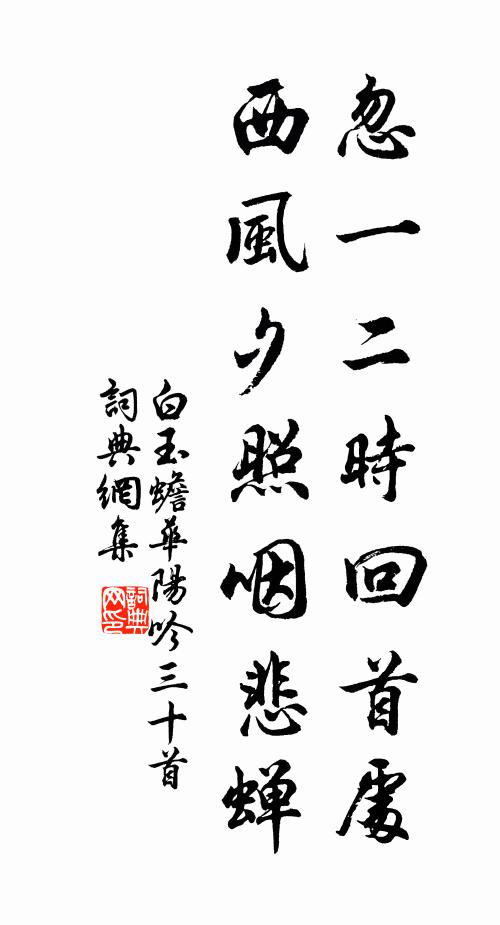 忽一二時回首處
西風夕照咽悲蝉
白玉蟾華陽吟三十首
詞典網集
詞典网印